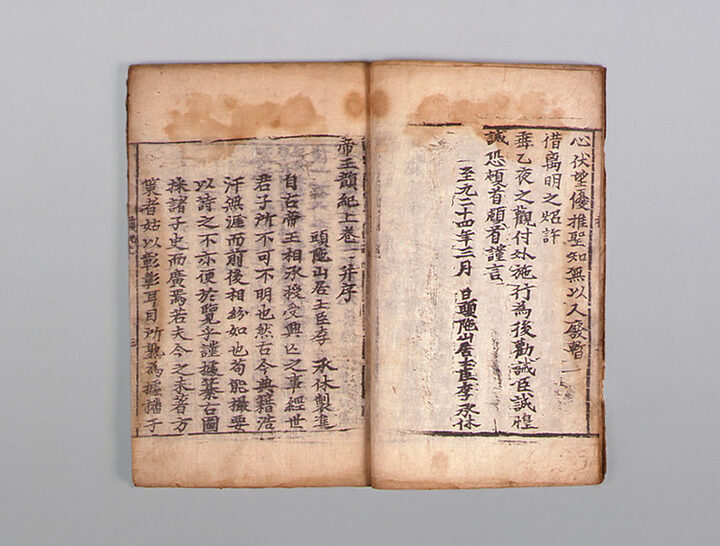 心伏望優推聖知無以人廢暫
借离明之炤許
垂乙夜之觀付外施行為後勸誡臣誠惶
誠恐頓首頓首謹言
至元二十四年三月 日頭陁山居士臣李承休
帝王韻紀上卷一并序
頭陁山居士臣李 承休製進
自古帝王相承授受興亡之事經世
君子所不可不明也然古今典籍浩
汗無涯而前後相紛如也苟能撮要
以詩之不亦便於覽乎謹據纂古圖
採諸子史而廣焉若夫今之未著方
策者姑以彰彰耳目所熟為據播于